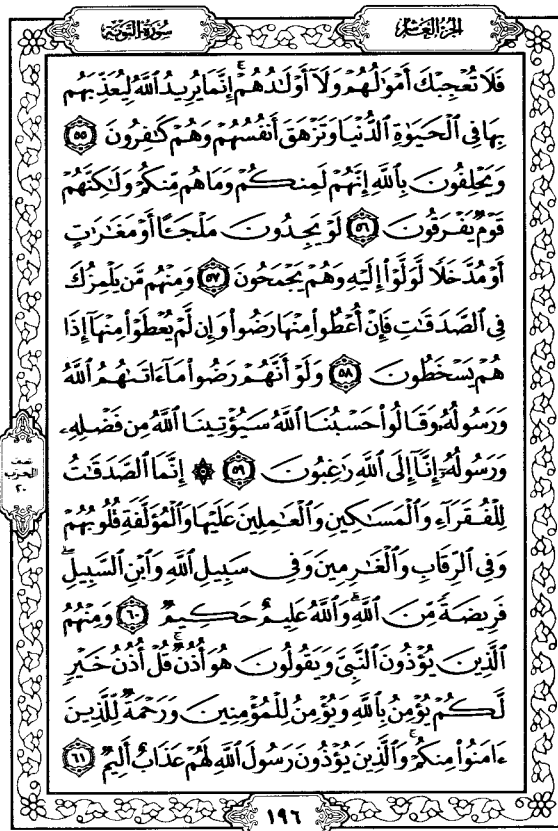 سُورَةُ التَّوْبَةِ
الجُزءُ العَاشِرُ
فَلَا تُعْجِبْكَ أَمْوَٰلُهُمْ وَلَآ أَوْلَٰدُهُمْ ۚ إِنَّمَا يُرِيدُ ٱللَّهُ لِيُعَذِّبَهُم
بِهَا فِى ٱلْحَيَوٰةِ ٱلدُّنْيَا وَتَزْهَقَ أَنفُسُهُمْ وَهُمْ كَٰفِرُونَ ٥٥
وَيَحْلِفُونَ بِٱللَّهِ إِنَّهُمْ لَمِنكُمْ وَمَا هُم مِّنكُمْ وَلَٰكِنَّهُمْ
قَوْمٌ يَفْرَقُونَ ٥٦ لَوْ يَجِدُونَ مَلْجَـًٔا أَوْ مَغَٰرَٰتٍ
أَوْ مُدَّخَلًا لَّوَلَّوْا۟ إِلَيْهِ وَهُمْ يَجْمَحُونَ ٥٧ وَمِنْهُم مَّن يَلْمِزُكَ
فِى ٱلصَّدَقَٰتِ فَإِنْ أُعْطُوا۟ مِنْهَا رَضُوا۟ وَإِن لَّمْ يُعْطَوْا۟ مِنْهَآ إِذَا
هُمْ يَسْخَطُونَ ٥٨ وَلَوْ أَنَّهُمْ رَضُوا۟ مَآ ءَاتَىٰهُمُ ٱللَّهُ
وَرَسُولُهُۥ وَقَالُوا۟ حَسْبُنَا ٱللَّهُ سَيُؤْتِينَا ٱللَّهُ مِن فَضْلِهِۦ
وَرَسُولُهُۥٓ إِنَّآ إِلَى ٱللَّهِ رَٰغِبُونَ ٥٩ ۞ إِنَّمَا ٱلصَّدَقَٰتُ
لِلْفُقَرَآءِ وَٱلْمَسَٰكِينِ وَٱلْعَٰمِلِينَ عَلَيْهَا وَٱلْمُؤَلَّفَةِ قُلُوبُهُمْ
وَفِى ٱلرِّقَابِ وَٱلْغَٰرِمِينَ وَفِى سَبِيلِ ٱللَّهِ وَٱبْنِ ٱلسَّبِيلِ ۖ
فَرِيضَةً مِّنَ ٱللَّهِ ۗ وَٱللَّهُ عَلِيمٌ حَكِيمٌ ٦٠ وَمِنْهُمُ
ٱلَّذِينَ يُؤْذُونَ ٱلنَّبِىَّ وَيَقُولُونَ هُوَ أُذُنٌ ۚ قُلْ أُذُنُ خَيْرٍ
لَّكُمْ يُؤْمِنُ بِٱللَّهِ وَيُؤْمِنُ لِلْمُؤْمِنِينَ وَرَحْمَةٌ لِّلَّذِينَ
ءَامَنُوا۟ مِنكُمْ ۚ وَٱلَّذِينَ يُؤْذُونَ رَسُولَ ٱللَّهِ لَهُمْ عَذَابٌ أَلِيمٌ ٦١
نصف
الحزب
٢٠
١٩٦